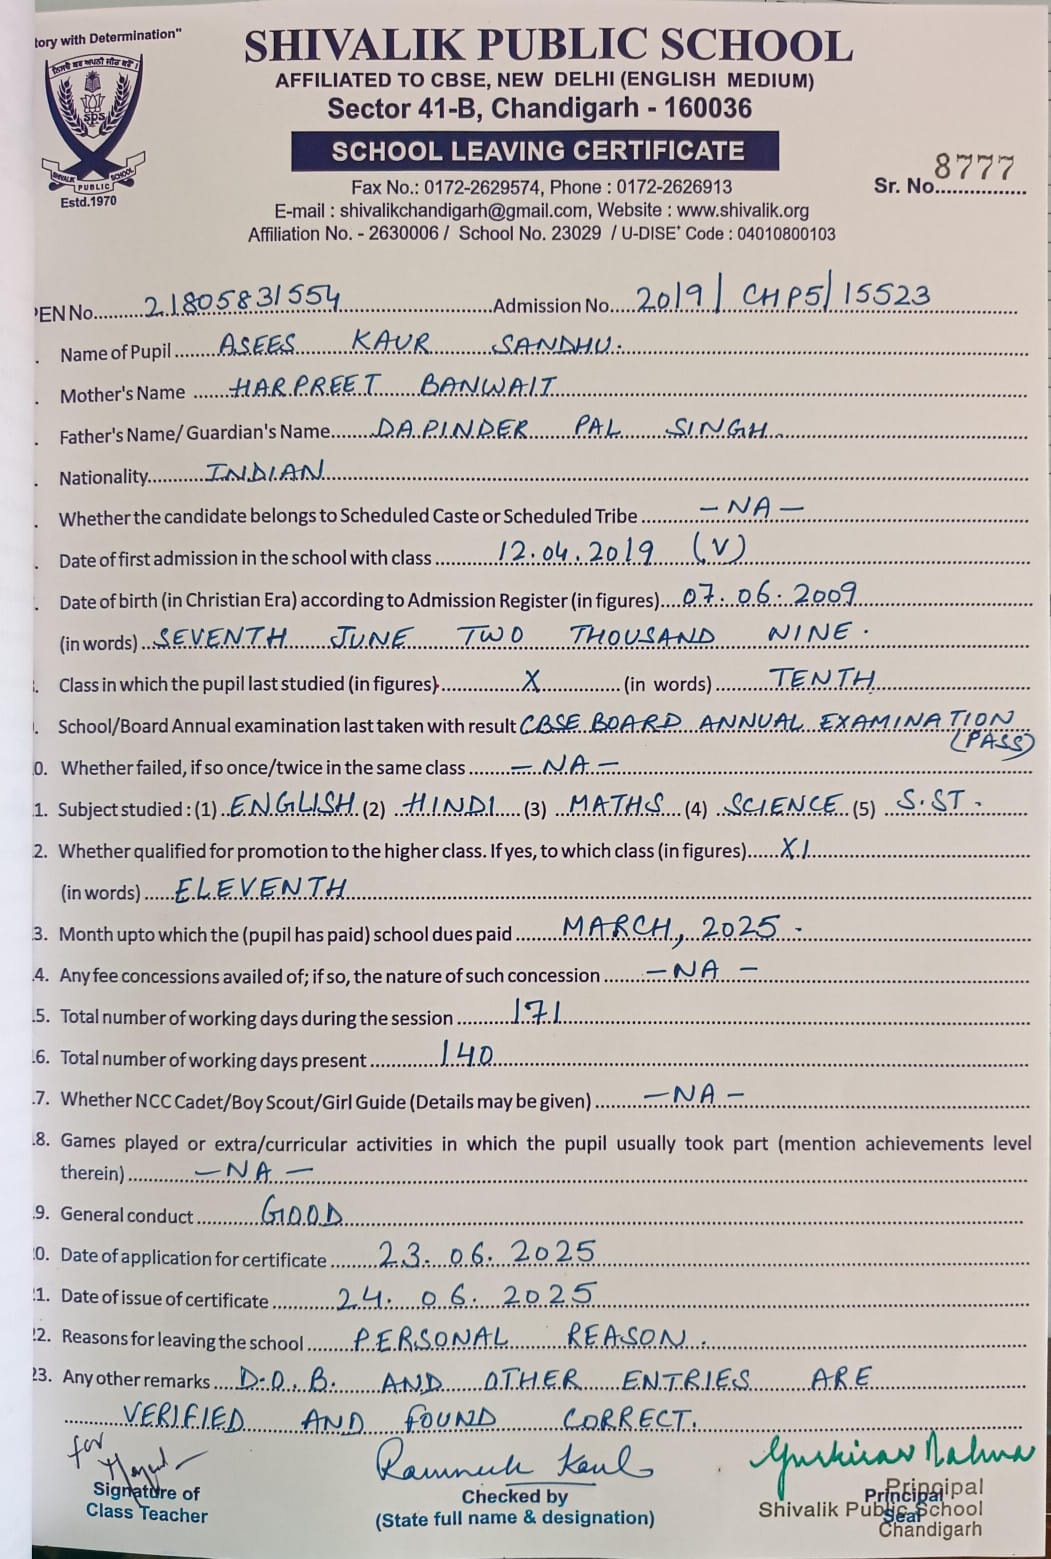 tory with Determination"
SHIVALIK PUBLIC SCHOOL
AFFILIATED TO CBSE, NEW DELHI (ENGLISH MEDIUM)
Sector 41-B, Chandigarh - 160036
SCHOOL LEAVING CERTIFICATE
ਨਿਸਚੈ ਕਰ ਅਪਨੀ ਜੀਤ ਕਰੋਂ
SPS
SHIVALIK PUBLIC SCHOOL
Estd.1970
Sr. No. 8777
Fax No.: 0172-2629574, Phone : 0172-2626913
E-mail : shivalikchandigarh@gmail.com, Website : www.shivalik.org
Affiliation No. - 2630006 / School No. 23029 / U-DISE+ Code : 04010800103
PEN No. 21805831554 Admission No. 2019/CHPS/15523
. Name of Pupil ASEES KAUR SANDHU.
. Mother's Name HARPREET BANWAIT
. Father's Name/ Guardian's Name DAPINDER PAL SINGH.
. Nationality INDIAN
. Whether the candidate belongs to Scheduled Caste or Scheduled Tribe - NA -
. Date of first admission in the school with class 12.04.2019 (V)
. Date of birth (in Christian Era) according to Admission Register (in figures) 07.06.2009
(in words) SEVENTH JUNE TWO THOUSAND NINE.
. Class in which the pupil last studied (in figures) X (in words) TENTH
. School/Board Annual examination last taken with result CBSE BOARD ANNUAL EXAMINATION
(PASS)
0. Whether failed, if so once/twice in the same class - NA -
1. Subject studied : (1) ENGLISH (2) HINDI (3) MATHS (4) SCIENCE (5) S.ST.
2. Whether qualified for promotion to the higher class. If yes, to which class (in figures) XI
(in words) ELEVENTH
3. Month upto which the (pupil has paid) school dues paid MARCH, 2025.
4. Any fee concessions availed of; if so, the nature of such concession - NA -
5. Total number of working days during the session 171
6. Total number of working days present 140
7. Whether NCC Cadet/Boy Scout/Girl Guide (Details may be given) - NA -
8. Games played or extra/curricular activities in which the pupil usually took part (mention achievements level
therein) - NA -
9. General conduct GOOD
0. Date of application for certificate 23.06.2025
1. Date of issue of certificate 24.06.2025
2. Reasons for leaving the school PERSONAL REASON.
23. Any other remarks D.O.B. AND OTHER ENTRIES ARE
VERIFIED AND FOUND CORRECT.
for
Signature of
Class Teacher
Checked by
(State full name & designation)
Principal
Seal
Principal
Shivalik Public School
Chandigarh